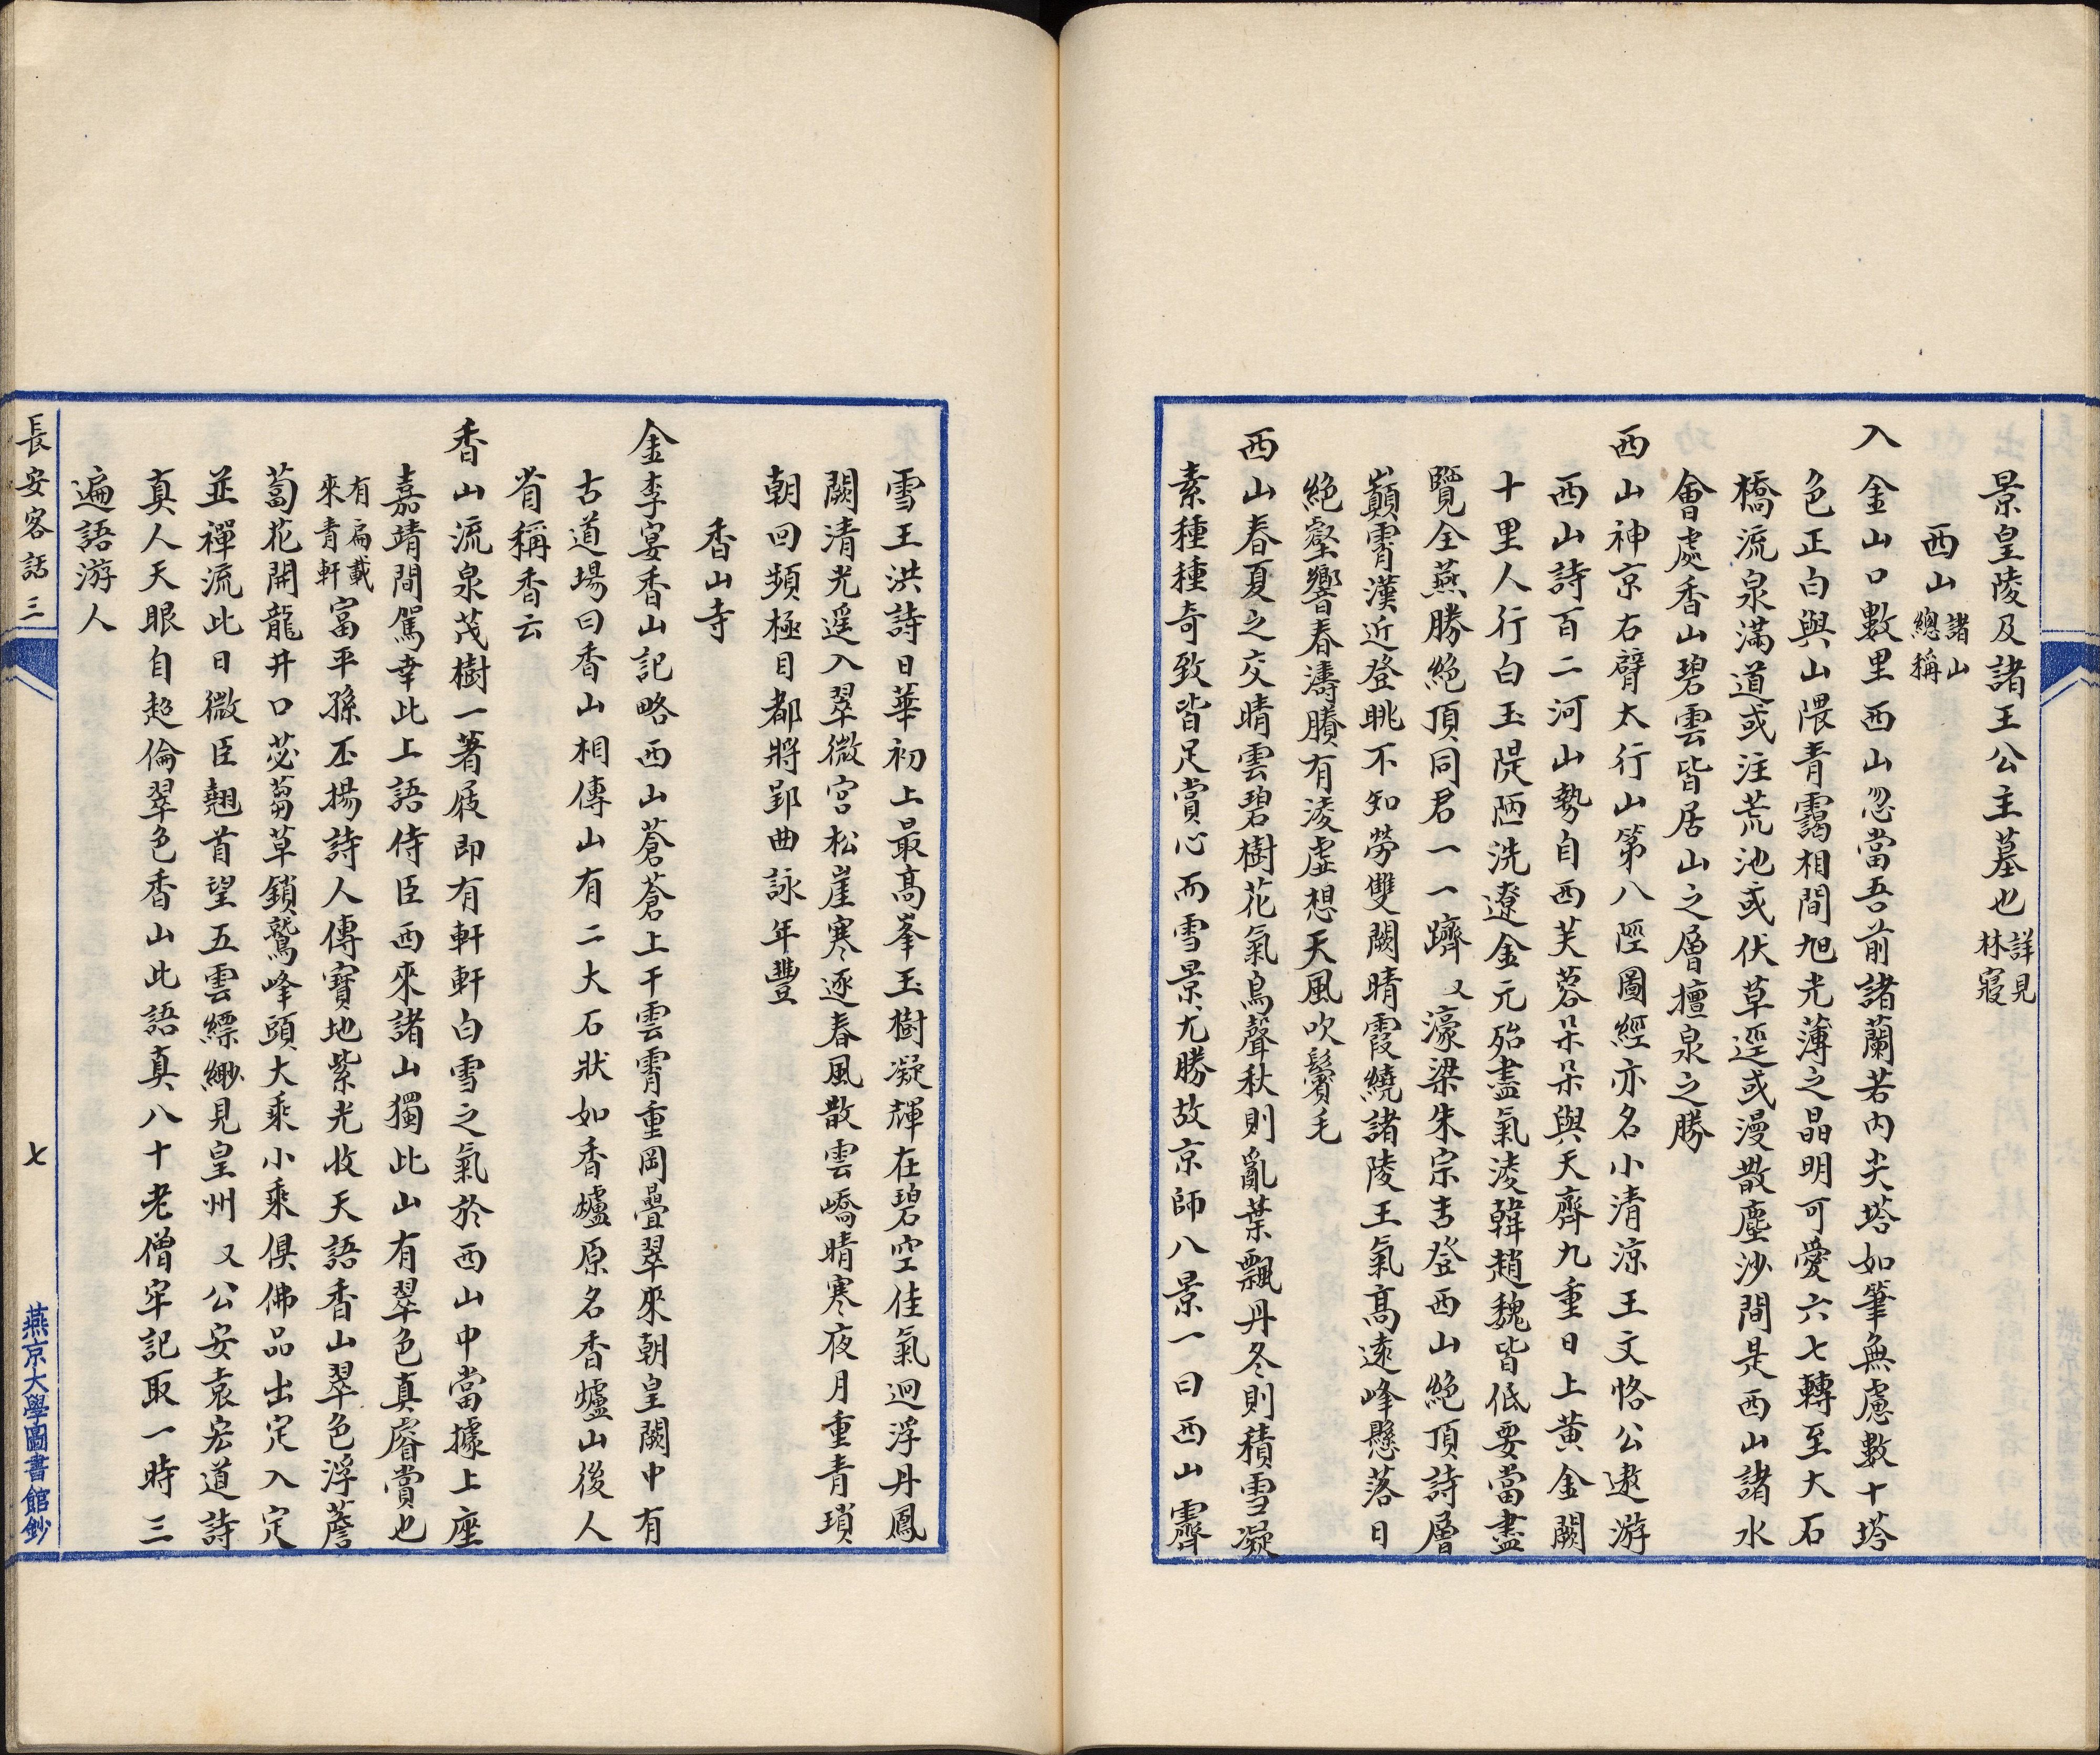 景皇陵及諸王公主墓也詳見林寢
西山諸山總稱
入金山口數里西山忽當吾前諸蘭若内尖塔如筆無慮數十塔
色正白與山隈青靄相間旭光薄之晶明可愛六七轉至大石
橋流泉滿道或注荒池或伏草逕或漫散塵沙間是西山諸水
會處香山碧雲皆居山之層擅泉之勝
西山神京右臂太行山第八陘圖經亦名小清涼王文恪公遨游
西山詩百二河山勢自西芙蓉朵朵與天齊九重日上黄金闕
十里人行白玉隄陋洗遼金元殆盡氣淩韓趙魏皆低要當盡
覽全燕勝絶頂同君一一躋又濠梁朱宗吉登西山絶頂詩層
巔霄漢近登眺不知勞雙闕晴霞繞諸陵王氣髙遠峰懸落日
絶壑響春濤賸有淩虛想天風吹鬢毛
西山春夏之交晴雲碧樹花氣鳥聲秋則亂葉飄丹冬則積雪凝
素種種奇致皆足賞心而雪景尤勝故京師八景一曰西山霽
雪王洪詩日華初上最髙峯玉樹凝輝在碧空佳氣迥浮丹鳳
闕清光遥入翠微宮松崖寒逐春風散雲嶠晴寒夜月重青瑣
朝回頻極目都將郢曲詠年豐
香山寺
金李宴香山記略西山蒼蒼上干雲霄重岡疊翠來朝皇闕中有
古道場曰香山相傳山有二大石狀如香爐原名香爐山後人
省稱香云
香山流泉茂樹一著屐即有軒軒白雪之氣於西山中當據上座
嘉靖間駕幸此上語侍臣西來諸山獨此山有翠色真睿賞也
有扁載來青軒富平孫丕揚詩人傳寶地紫光收天語香山翠色浮薝
蔔花開龍井口苾蒭草鎖鷲峰頭大乘小乘俱佛品出定入定
並禪流此日微臣翹首望五雲縹緲見皇州又公安袁宏道詩
真人天眼自超倫翠色香山此語真八十老僧牢記取一時三
遍語游人
長安客話三
七
燕京大學圖書館鈔